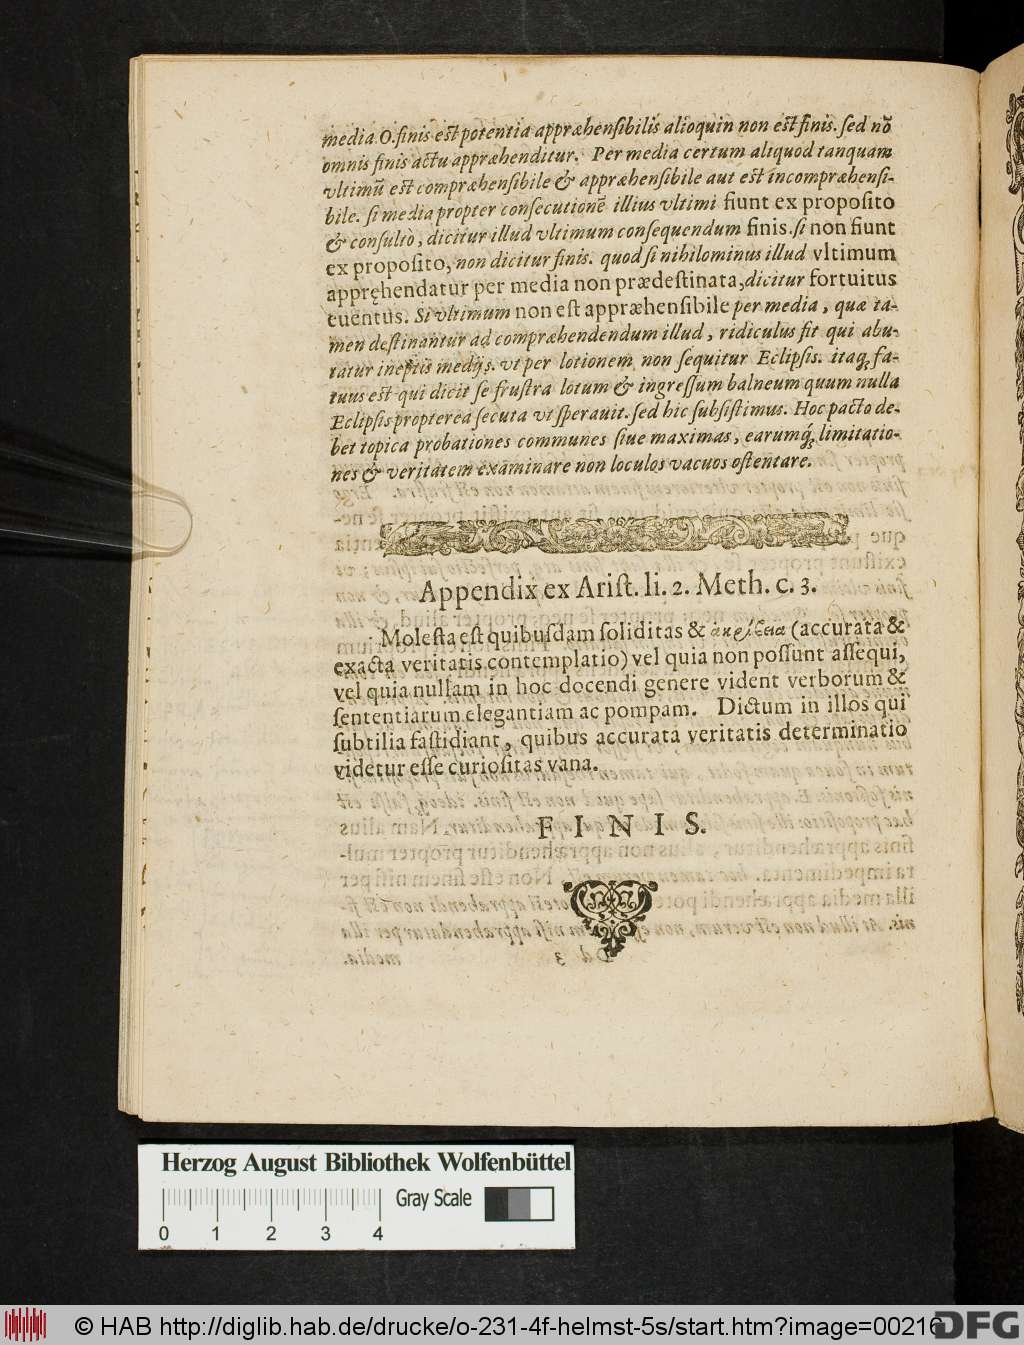 media. O. finis est potentia appræhensibilis alioquin non est finis. sed nõ
omnis finis actu appræhenditur. Per media certum aliquod tanquam
vltimũ est compræhensibile & appræhensibile aut est incompræhensi-
bile. si media propter consecutionẽ illius vltimi fiunt ex proposito
& consulto, dicitur illud vltimum consequendum finis. si non fiunt
ex proposito, non dicitur finis. quod si nihilominus illud vltimum
appręhendatur per media non prædestinata, dicitur fortuitus
euentus. Si vltimum non est appræhensibile per media, quæ ta-
men destinantur ad compræhendendum illud, ridiculus fit qui abu-
tatur ineptis medijs. vt per lotionem non sequitur Eclipsis. itaq; fa-
tuus est qui dicit se frustra lotum & ingressum balneum quum nulla
Eclipsis propterea secuta vt sperauit. sed hic subsistimus. Hoc pacto de-
bet topica probationes communes siue maximas, earumq́; limitatio-
nes & veritatem examinare non loculos vacuos ostentare.
Appendix ex Arist. li. 2. Meth. c. 3.
Molesta est quibusdam soliditas & ἀκρίβεια (accurata &
exacta veritatis contemplatio) vel quia non possunt assequi,
vel quia nullam in hoc docendi genere vident verborum &
sententiarum elegantiam ac pompam. Dictum in illos qui
subtilia fastidiant, quibus accurata veritatis determinatio
videtur esse curiositas vana.
F I N I S.
Herzog August Bibliothek Wolfenbüttel
Gray Scale
0 1 2 3 4
© HAB http://diglib.hab.de/drucke/o-231-4f-helmst-5s/start.htm?image=00216
DFG